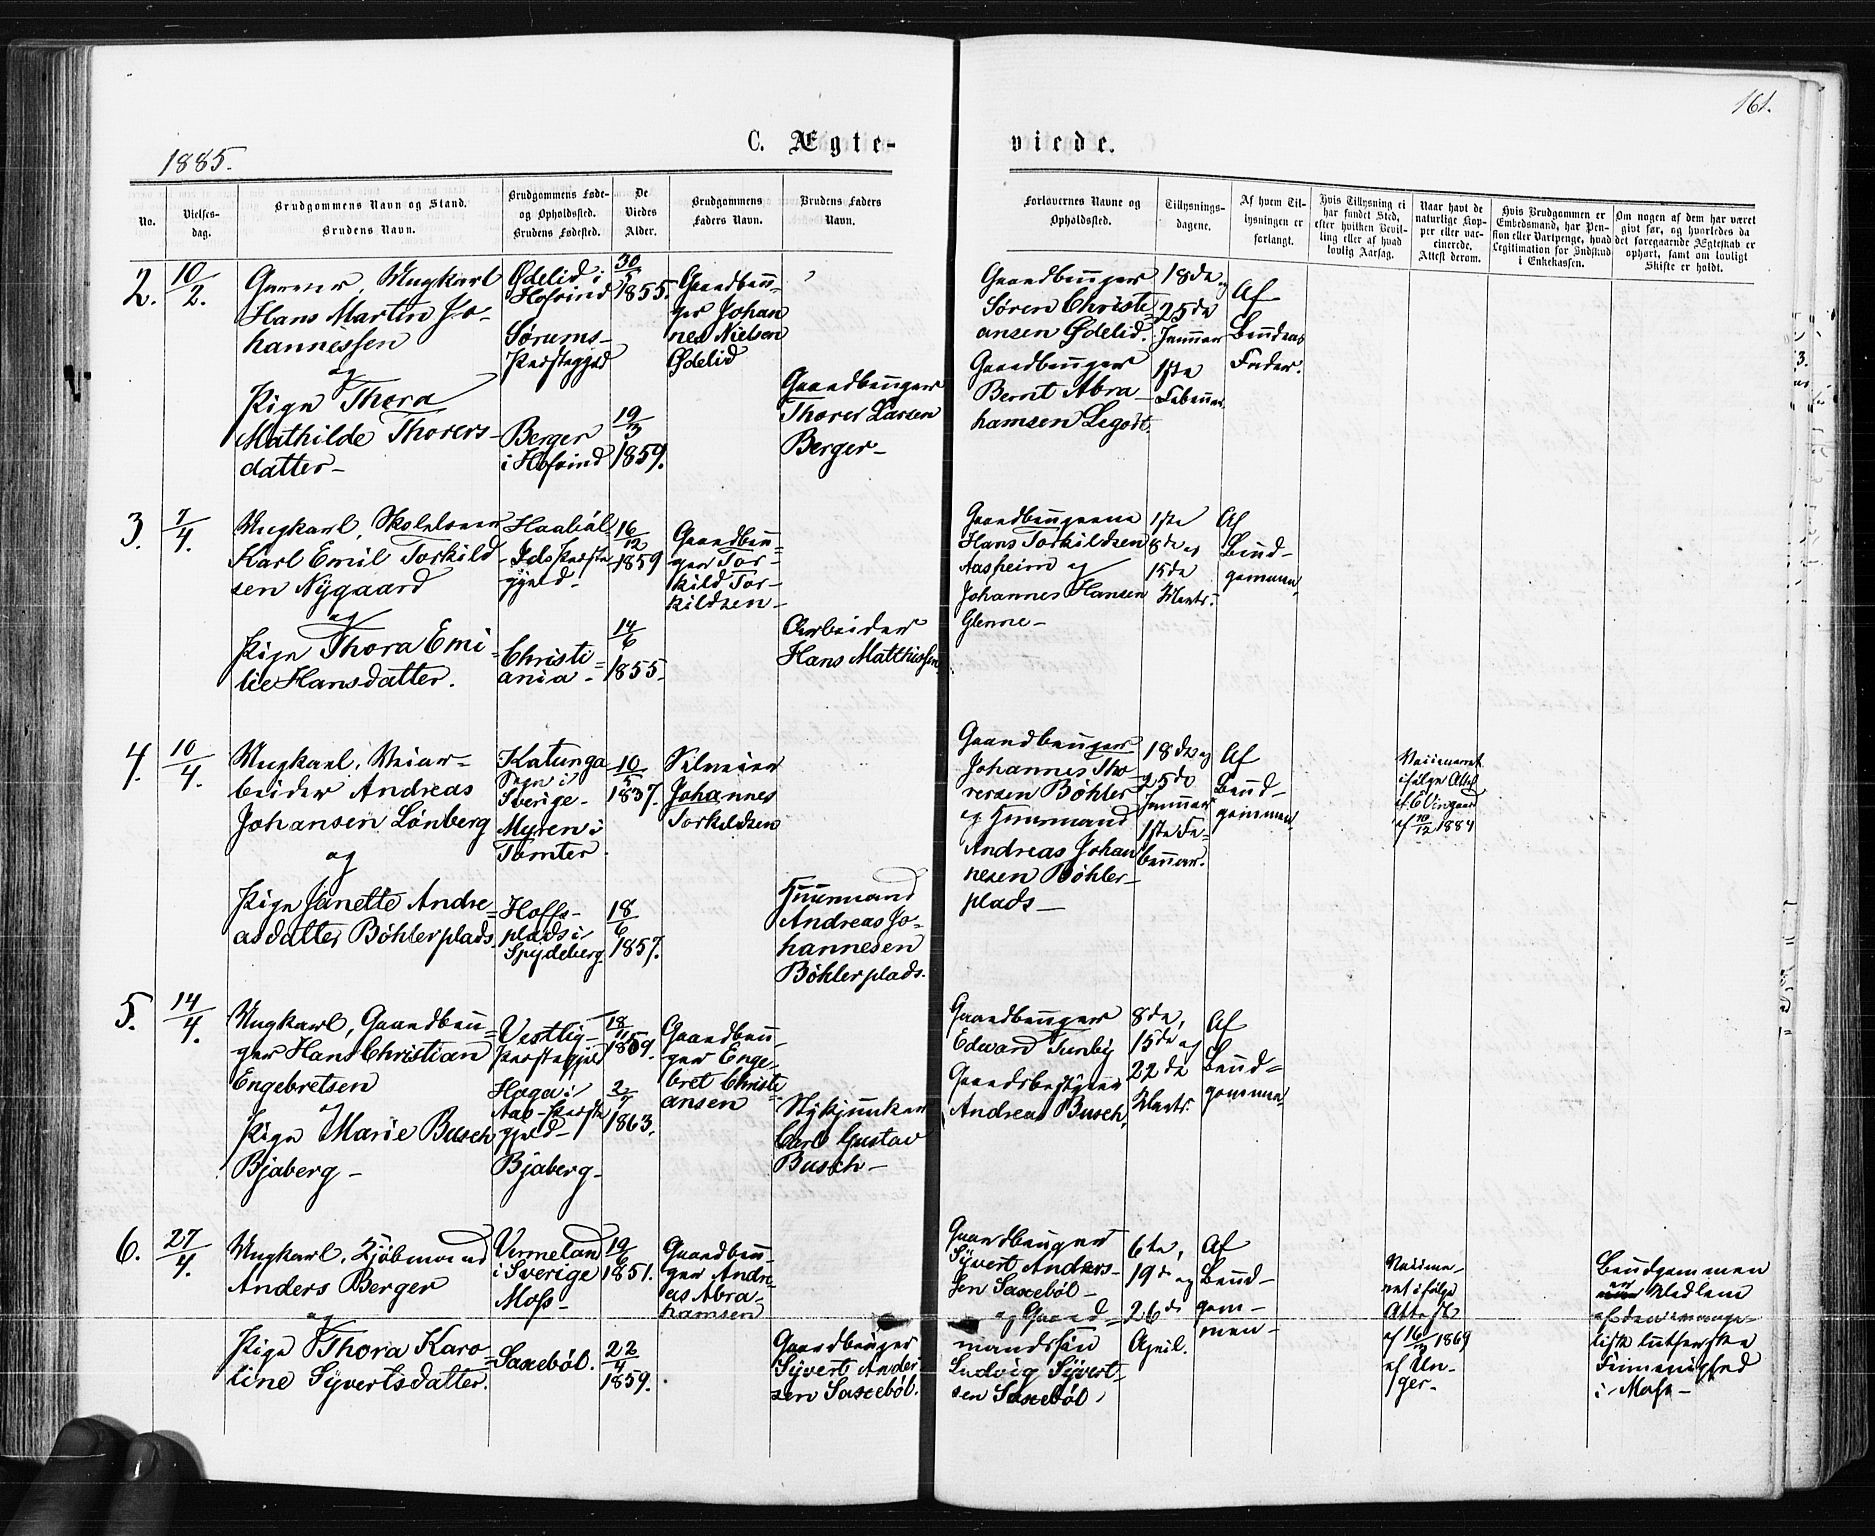 161.
1885.
C. Ægte-
viede.
No.
Vielses-
dag.
Brudgommens Navn og Stand.
Brudens Navn.
Brudgommens Føde-
og Opholdssted.
Brudens Fødested.
De
Viedes
Alder.
Brudgommens
Faders Navn.
Brudens Faders
Navn.
Forlovernes Navne og
Opholdssted.
Tillysnings-
dagene.
Af hvem Til-
lysningen er
forlangt.
Hvis Tillysning ei
har fundet Sted,
efter hvilken Bevil-
ling eller af hvad
lovlig Aarsag.
Naar havt de
naturlige Kop-
per eller vac-
cinerede.
Attest derom.
Hvis Brudgommen er
Embedsmand, har Pen-
sion eller Vartpenge, hvad
Legitimation for Indskud
i Enkekassen.
Om nogen af dem har været
givt før, og hvorledes da
det foregaaende Ægteskab er
ophørt, samt om lovligt
Skifte er holdt.
2.
10/2.
Ungkarl
Hans Martin Jo-
hannessen
og
Pige Thora
Mathilde Thorers-
datter-
Ødelid i
Hofvind
Sørums-
Præstegjæld
Berger
i Hofvind
30/5
1855.
19/3
1859.
Gaardbru-
ger Johan
nes Nielsen
Ødelid
Gaardbruger
Thorer Larsen
Berger-
Gaardbruger
Søren Christi-
ansen Ødelid.
Gaardbruger
Bernt Abra
hamsen Ligodt.
18de og
25de
Januar
1ste
Februar.
Af
Brudens
Fader.
3.
7/4.
Ungkarl,
Karl Emil Torkild
sen Nygaard
og
Pige Thora Emi-
lie Hansdatter.
Haabøl
Ids Præste
gjeld.
Christi-
ania-
16/12
1859
14/6
1855-
Gaardbru-
ger Tor-
kild Tor-
kildsen-
Arbeider
Hans Matthissen
Gaardbrugerne
Hans Torkildsen
Aasheim og
Johannes Hansen
Glenne-
1ste
8de og
15de
Marts.
Af
Brud-
gommen.
4.
10/4.
Ungkarl, Veiar-
beider Andreas
Johansen Lönberg
og
Pige Janette Andre-
asdatter Böhlerplads.
Katunga
Sogn i
Sverige-
Myren i
Tomter.
Hoffs-
plads i
Spydeberg.
10/5
1837.
18/6
1857.
Selveier
Johannes
Torkildsen
Huusmand
Andreas Jo-
hannesen
Böhlerplads.
Gaardbruger
Johannes Tho-
rersen Böhler
og Huusmand
Andreas Johan
nesen Böhler-
plads-
18de og
25de
Januar
1ste Fe-
bruar.
Af
Brud-
gommen.
Vaccineret
ifølge Attest
af 10/12 1884
5.
14/4.
Ungkarl, Gaardbru-
ger Hans Christian
Engebretsen
og
Pige Marie Busch
Bjaberg-
Vestby-
Præstegjeld
Haga i
Aas-Præste
gjeld-
Bjaberg-
18/11
1859.
2/7
1863.
Gaardbru-
ger Enge-
bret Christi
ansen
Stykjunker
Carl Gustav
Busch-
Gaardbruger
Edvard Sunby
Gaardsbestyrer
Andreas Busch.
8de,
15de og
22de
Marts.
Af
Brud-
gommen.
6.
27/4.
Ungkarl, Kjøbmand
Anders Berger
og
Pige Thora Karo-
line Syvertsdatter.
Vermeland
i Sverige
Moss-
Saxebøl.
19/6
1851.
22/4
1859.
Gaardbru-
ger Andre-
as Abra-
hamsen
Gaardbruger
Syvert Ander
sen Saxebøl.
Gaardbruger
Syvert Anders-
sen Saxebøl-
og Gaard-
mandssøn
Ludvig Syvert-
sen Saxebøl
6te,
19de og
26de
April.
Af
Brud-
gom-
men-
Vaccine-
ret ifølge
Attest
1869
af Un-
ger-
Brudgommen
er Medlem
af den evange-
lisk lutherske
Frimenighed
i Moss-